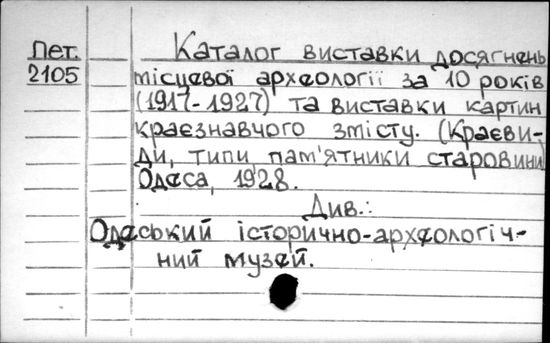 Пет.
2105
Каталог виставки досягнень
місцевої археології за 10 років
(1917-1927) та виставки картин
краєзнавчого змісту. (Краєви-
ди, типи, пам'ятники старовини)
Одеса, 1928.
Див.:
Одеський історично-археологіч-
ний музей.